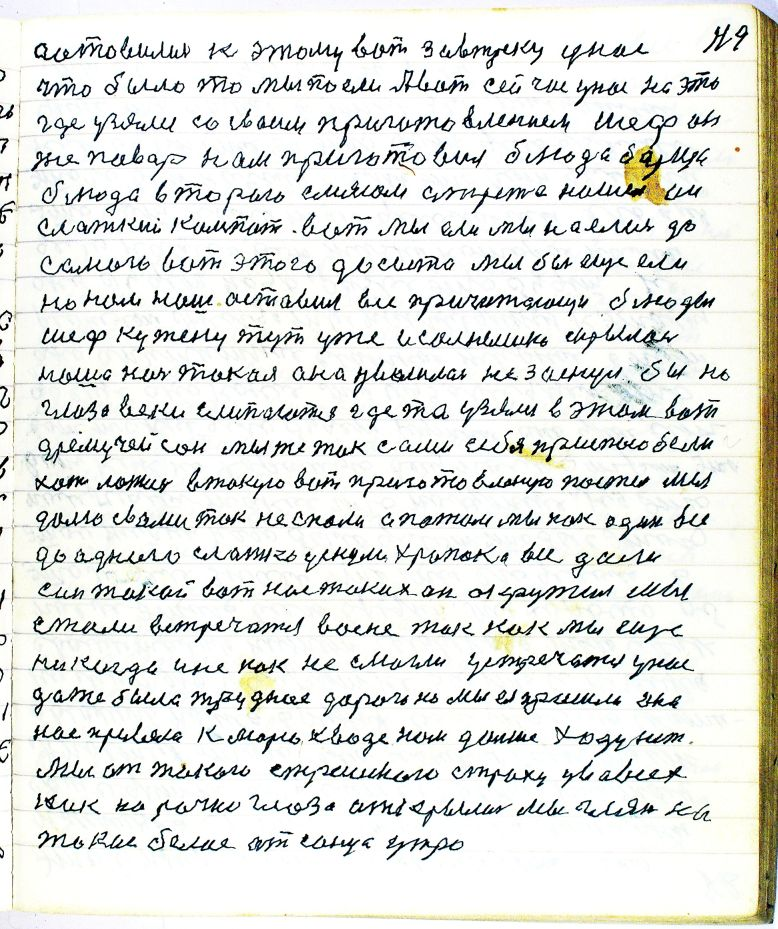 49
аставили к этому вот завтреку у нас
что было то мы поели А вот сей час у нас на это
где узяли со своим приготовлением шеф он
же повар нам приготовил блюда борща
блюда второго с мясом
слаткий компот. вот мы ели мы наелися до
самого вот этого досыта мы бы еще ели
но нам наш оставил все причитающи блюды
шеф кужену тут уже и солнышко скрылась
наша ноч такая она уволилас не заснул бы но
глаза веки слипаются где та узяли в этом вот
дремучей сон мы же так сами себя приспособели
хот ложис в такую вот приготовленую постел мы
долго с вами так не спали а патом мы как один все
до аднаго слатко уснули храпока все дали
сип такой вот нас таких он окружил мы
стали встречатя восне так как мы еще
никогда и не как не смогли устречатя у нас
даже была трудное дорога но мы ей прошли она
нас превяла к морю к воде нам дальше ходу нит.
мы от такого страшного страху у всех
как нарочно глаза аткрылис мы глян на
такие белае от сонца утро